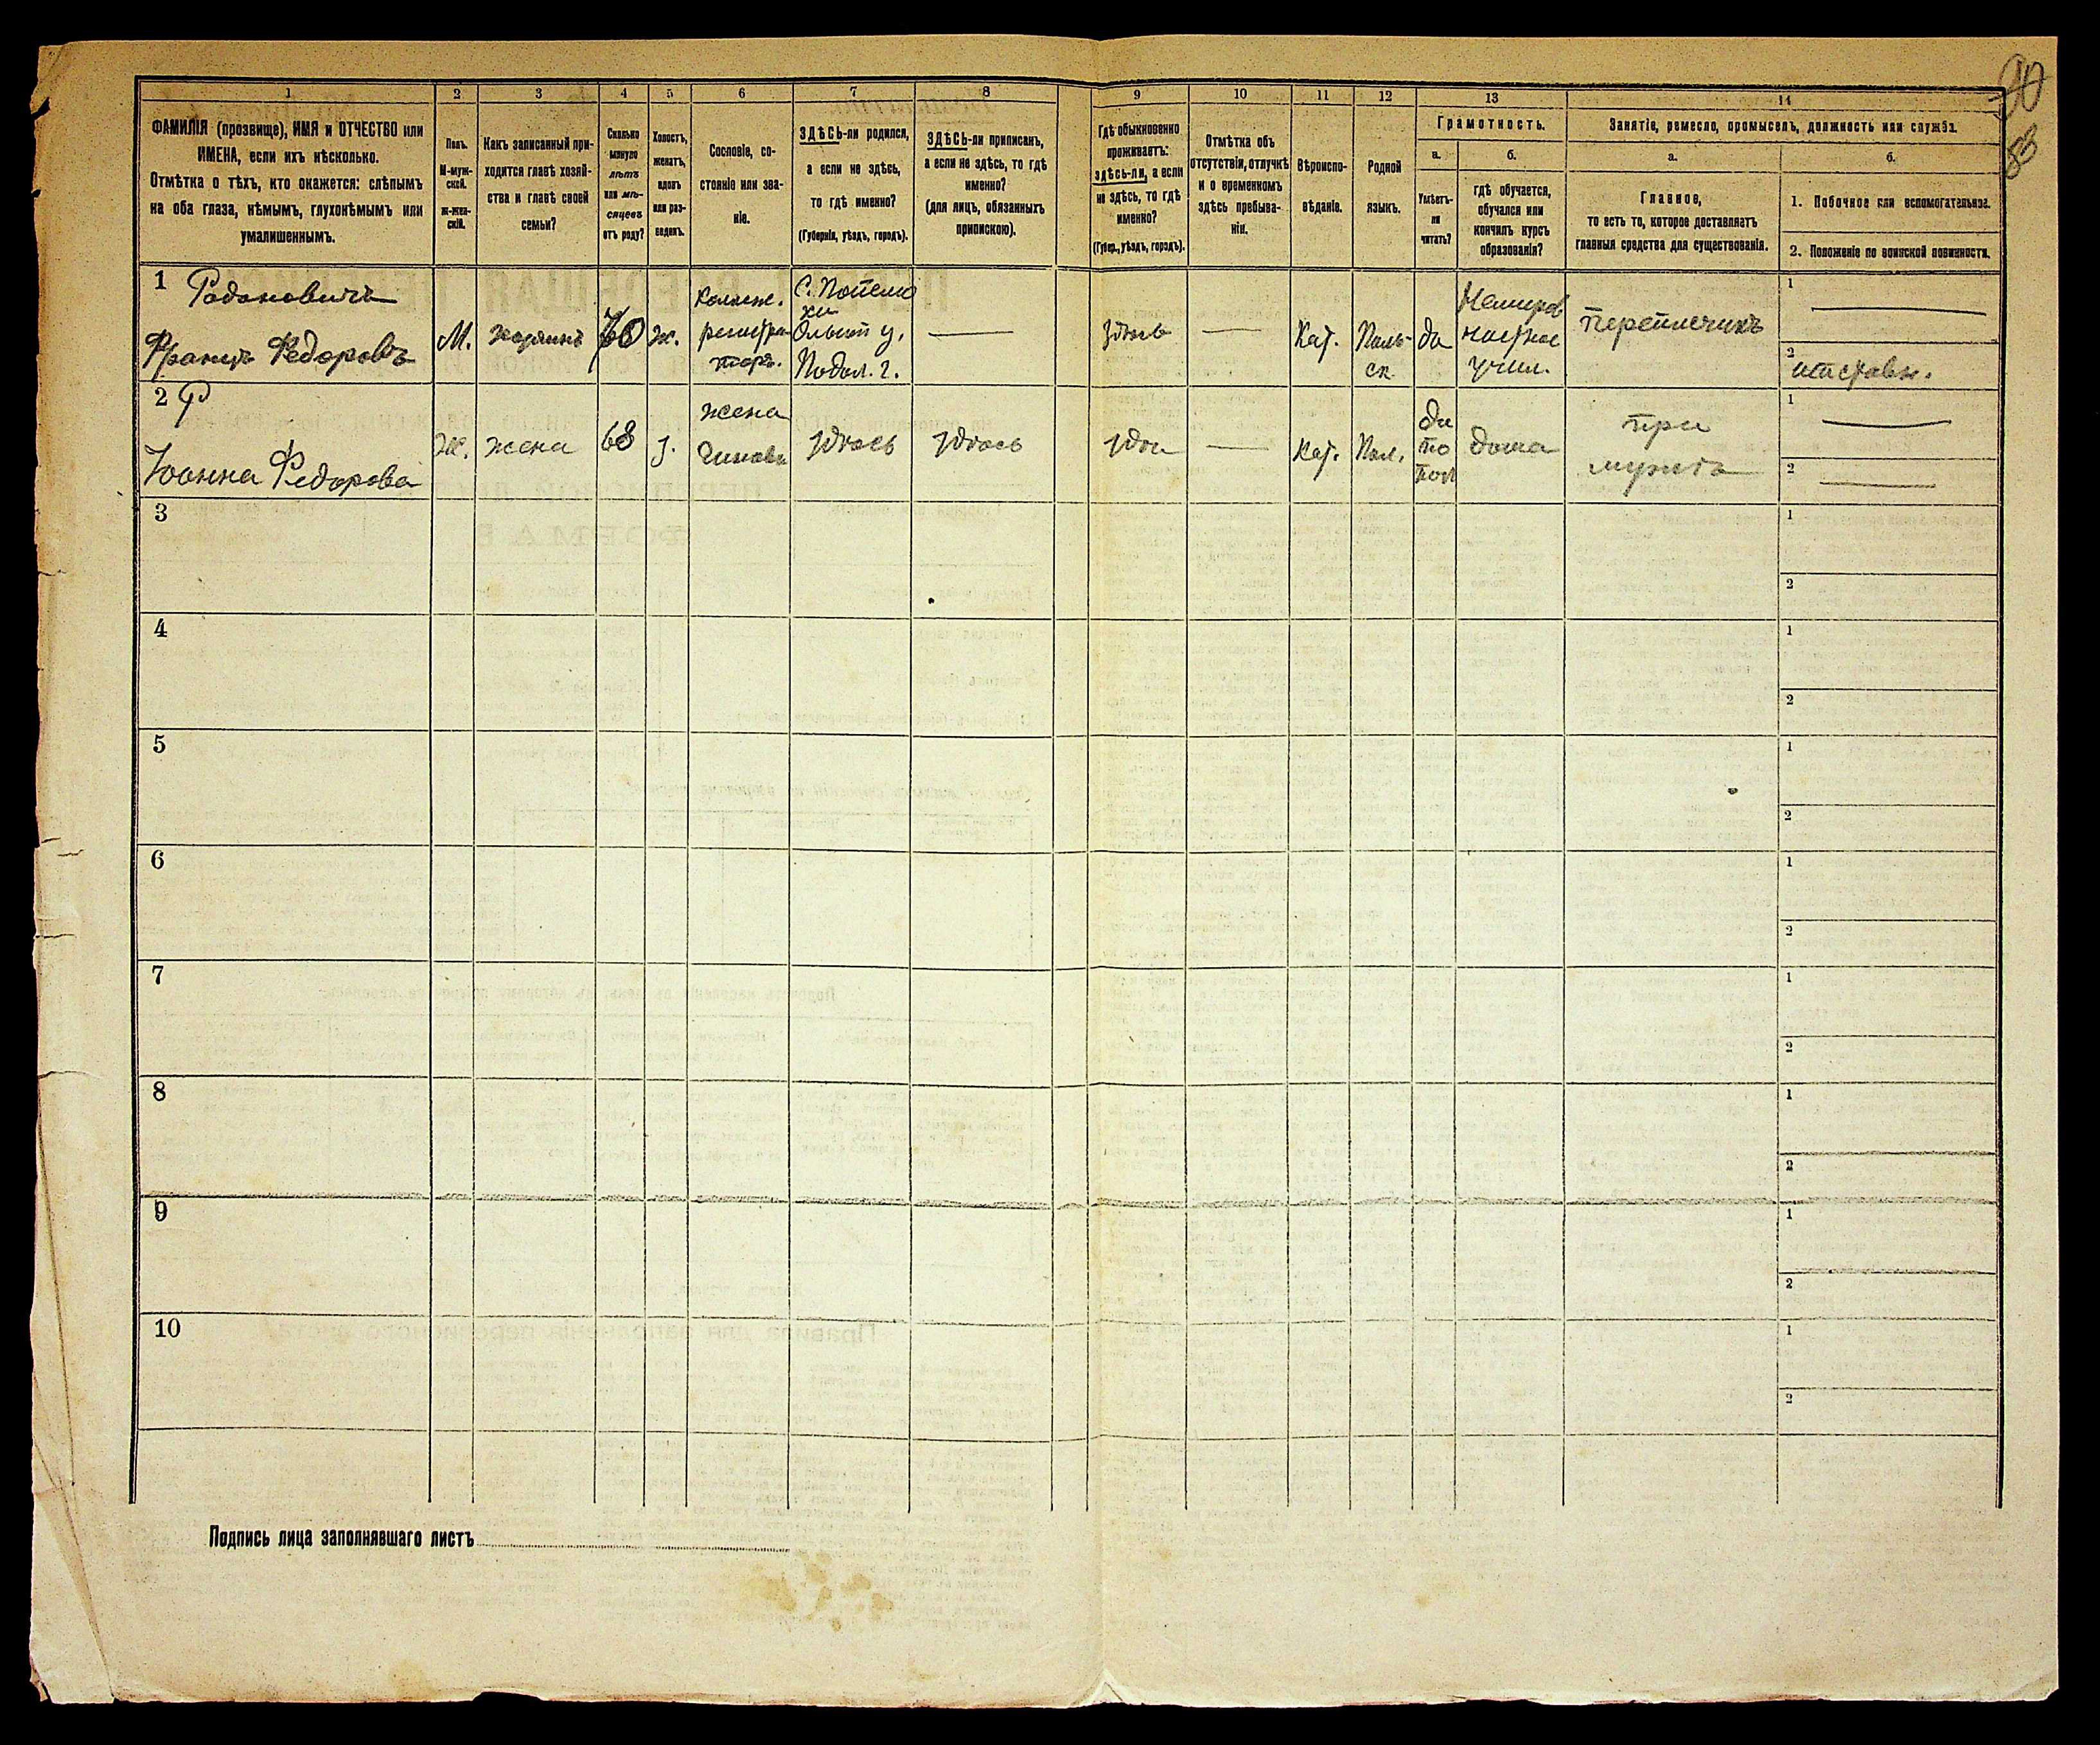 1 2 3 4 5 6 7 8 9 10 11 12 13 14
ФАМИЛІЯ (прозвище), ИМЯ и ОТЧЕСТВО или
ИМЕНА, если ихъ нѣсколько.
Отмѣтка о тѣхъ, кто окажется: слѣпымъ
на оба глаза, нѣмымъ, глухонѣмымъ или
умалишеннымъ.
Полъ.
М-муж-
ской.
Ж-жен-
скій.
Какъ записанный при-
ходится главѣ хозяй-
ства и главѣ своей
семьи?
Сколько
минуло
лѣтъ
или мѣ-
сяцевъ
отъ роду?
Холостъ,
женатъ,
вдовъ
или раз-
веденъ.
Сословіе, со-
стояніе или зва-
ніе.
ЗДѢСЬ-ли родился,
а если не здѣсь,
то гдѣ именно?
(Губернія, уѣздъ, городъ).
ЗДѢСЬ-ли приписанъ,
а если не здѣсь, то гдѣ
именно?
(для лицъ, обязанныхъ
припискою).
Гдѣ обыкновенно
проживаетъ:
здѣсь-ли, а если
не здѣсь, то гдѣ
именно?
(Губер., уѣздъ, городъ).
Отмѣтка объ
отсутствіи, отлучкѣ
и о временномъ
здѣсь пребыва-
ніи.
Вѣроиспо-
вѣданіе.
Родной
языкъ.
Грамотность.
а.
Умѣетъ-
ли
читать?
б.
гдѣ обучается,
обучался или
кончилъ курсъ
образованія?
Занятіе, ремесло, промыселъ, должность или служба.
а.
Главное,
то есть то, которое доставляетъ
главныя средства для существованія.
б.
1. Побочное или вспомогательное.
2. Положеніе по воинской повинности.
90
1
Радановичъ
Францъ Федоровъ
М.
хозяинъ
70
ж.
Коллеж.
регистра-
торъ.
Ольгоп у.
Подол. г.
здѣсь
Кат.
Поль-
ск.
да
Немиров
учил.
переписчикъ
1
2
отставн.
2
Іоанна Федорова
Ж.
жена
68
з.
жена
чиновн
здѣсь
здѣсь
здѣ
Кат.
Пол.
да
по
пол
дома
при
мужѣ
1
2
3
1
2
4
1
2
5
1
2
6
1
2
7
1
2
8
1
2
9
1
2
10
1
2
Подпись лица заполнявшаго листъ